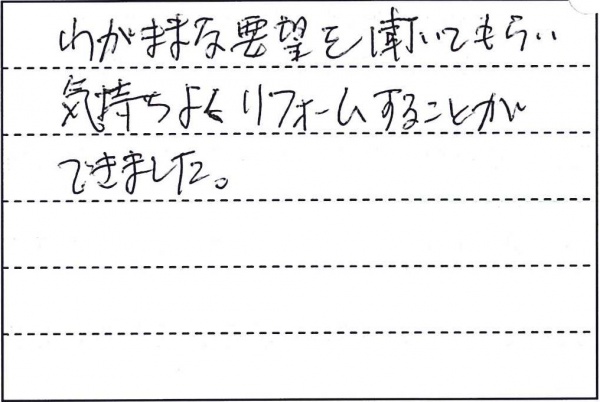 わがままな要望を聞いてもらい
気持ちよくリフォームすることが
できました。